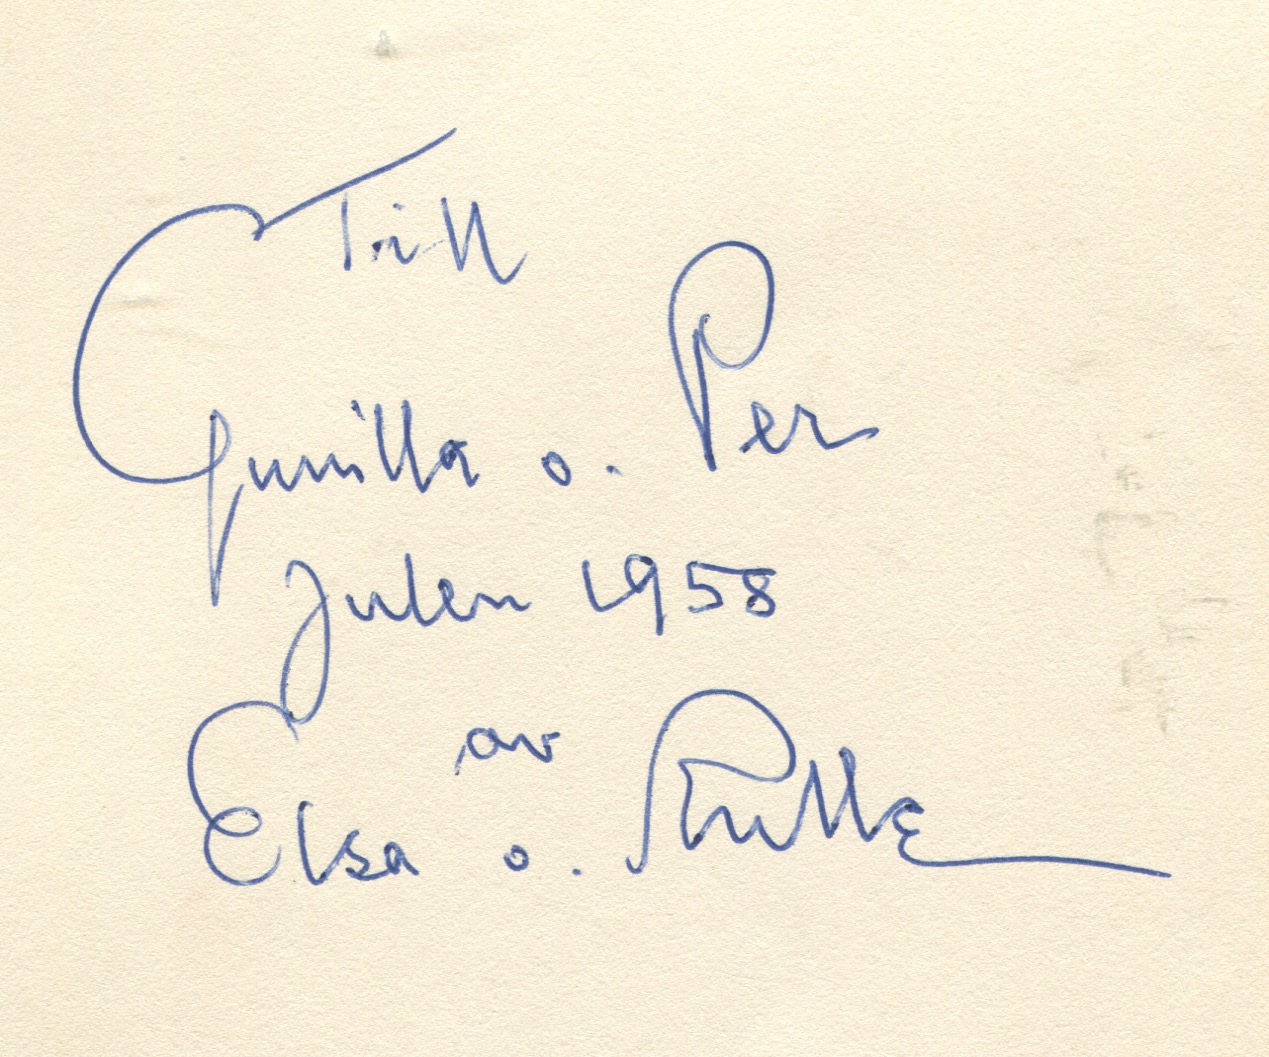 Till
Gunilla o. Per
Julen 1958
av
Elsa o.